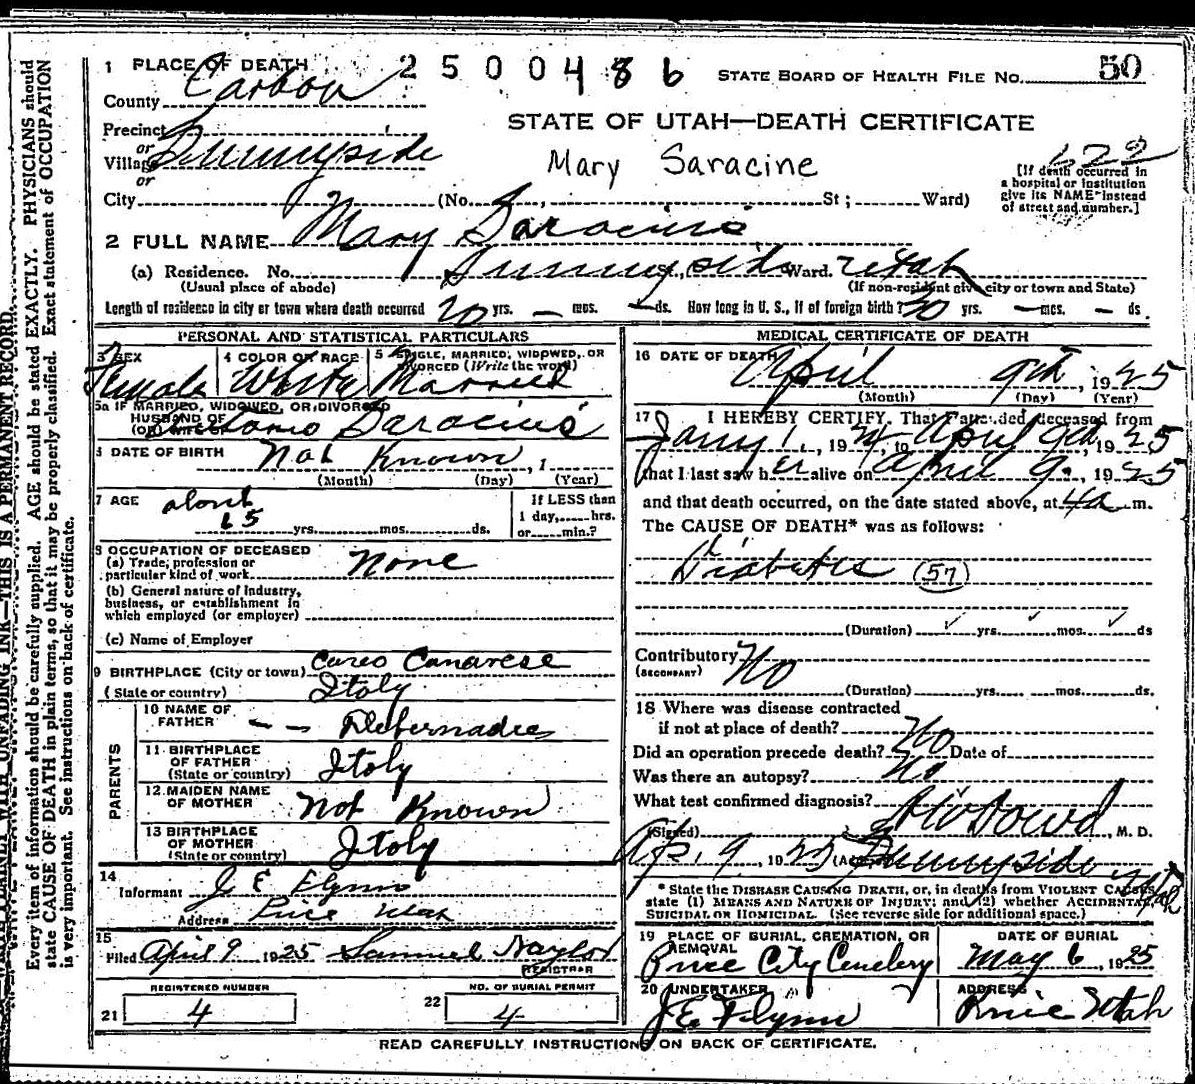 1 PLACE OF DEATH 2500486 STATE BOARD OF HEALTH FILE NO. 50
County Carbon
STATE OF UTAH—DEATH CERTIFICATE
Precinct
or
Village Sunnyside
Mary Saracine
622
or
City (No. , St ; Ward)
[If death occurred in
a hospital or institution
give its NAME instead
of street and number.]
2 FULL NAME Mary Saracino
(a) Residence. No. Sunnyside St., Ward. Utah
(Usual place of abode) (If non-resident give city or town and State)
Length of residence in city or town where death occurred 20 yrs. — mos. — ds. How long in U. S., if of foreign birth? 30 yrs. — mos. — ds.
PERSONAL AND STATISTICAL PARTICULARS
3 SEX 4 COLOR OR RACE 5 SINGLE, MARRIED, WIDOWED, OR
DIVORCED (Write the word)
Female White Married
5a IF MARRIED, WIDOWED, OR DIVORCED
HUSBAND OF
(OR) WIFE OF Saracino
6 DATE OF BIRTH Not Known , 1
(Month) (Day) (Year)
7 AGE about
65 yrs. mos. ds.
If LESS than
1 day, hrs.
or min.?
8 OCCUPATION OF DECEASED
(a) Trade, profession or
particular kind of work None
(b) General nature of Industry,
business, or establishment in
which employed (or employer)
(c) Name of Employer
9 BIRTHPLACE (City or town) Coreo Canavese
(State or country) Italy
PARENTS
10 NAME OF
FATHER — — Debernadies
11 BIRTHPLACE
OF FATHER
(State or country) Italy
12 MAIDEN NAME
OF MOTHER Not Known
13 BIRTHPLACE
OF MOTHER
(State or country) Italy
14
Informant J E Flynn
Address Price Utah
15
Filed April 9 1925 Samuel Naylor
REGISTRAR
REGISTERED NUMBER NO. OF BURIAL PERMIT
21 4 22 4
MEDICAL CERTIFICATE OF DEATH
16 DATE OF DEATH April 9th , 1925
(Month) (Day) (Year)
17 I HEREBY CERTIFY, That I attended deceased from
Jany 1, , 1924, to April 9th, 1925
that I last saw her alive on April 9. , 1925
and that death occurred, on the date stated above, at 4a m.
The CAUSE OF DEATH* was as follows:
Diabetes (57)
(Duration) yrs. mos. ds
Contributory No
(SECONDARY)
(Duration) yrs. mos. ds.
18 Where was disease contracted
if not at place of death? No
Did an operation precede death? No Date of
Was there an autopsy? No
What test confirmed diagnosis?
(Signed) Dowd, M. D.
Ap. 9 , 1925 (Address) Sunnyside Utah
* State the DISEASE CAUSING DEATH, or, in deaths from VIOLENT CAUSES
state (1) MEANS AND NATURE OF INJURY; and (2) whether ACCIDENTAL
SUICIDAL OR HOMICIDAL. (See reverse side for additional space.)
19 PLACE OF BURIAL, CREMATION, OR
REMOVAL
Price City Cemetery
DATE OF BURIAL
May 6 , 1925
20 UNDERTAKER
J E Flynn
ADDRESS
Price Utah
READ CAREFULLY INSTRUCTIONS ON BACK OF CERTIFICATE.
WITH UNFADING INK—THIS IS A PERMANENT RECORD.
Every item of information should be carefully supplied. AGE should be stated EXACTLY. PHYSICIANS should
state CAUSE OF DEATH in plain terms, so that it may be properly classified. Exact statement of OCCUPATION
is very important. See instructions on back of certificate.